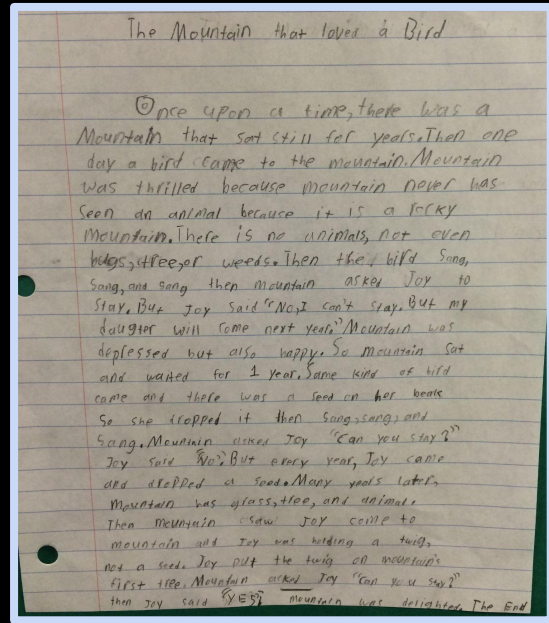 The Mountain that loved a Bird
Once upon a time, there was a
Mountain that sat still for years. Then one
day a bird came to the mountain. Mountain
was thrilled because mountain never has
seen an animal because it is a rocky
Mountain. There is no animals, not even
bugs, tree, or weeds. Then the bird Sang,
Sang, and sang then mountain asked Joy to
Stay. But Joy said "No, I can't stay. But my
daugter will come next year." Mountain was
depressed but also happy. So mountain sat
and waited for 1 year. Same kind of bird
came and there was a seed on her beak
So she dropped it then Sang, sang, and
Sang. Mountain asked Joy "Can you stay?"
Joy said "No". But every year, Joy came
and dropped a seed. Many years later,
mountain has grass, tree, and animal.
Then mountain saw Joy come to
mountain and Joy was holding a twig,
not a seed. Joy put the twig on mountain's
first tree. Mountain asked Joy "Can you stay?"
then Joy said "YES". Mountain was delighted. The End